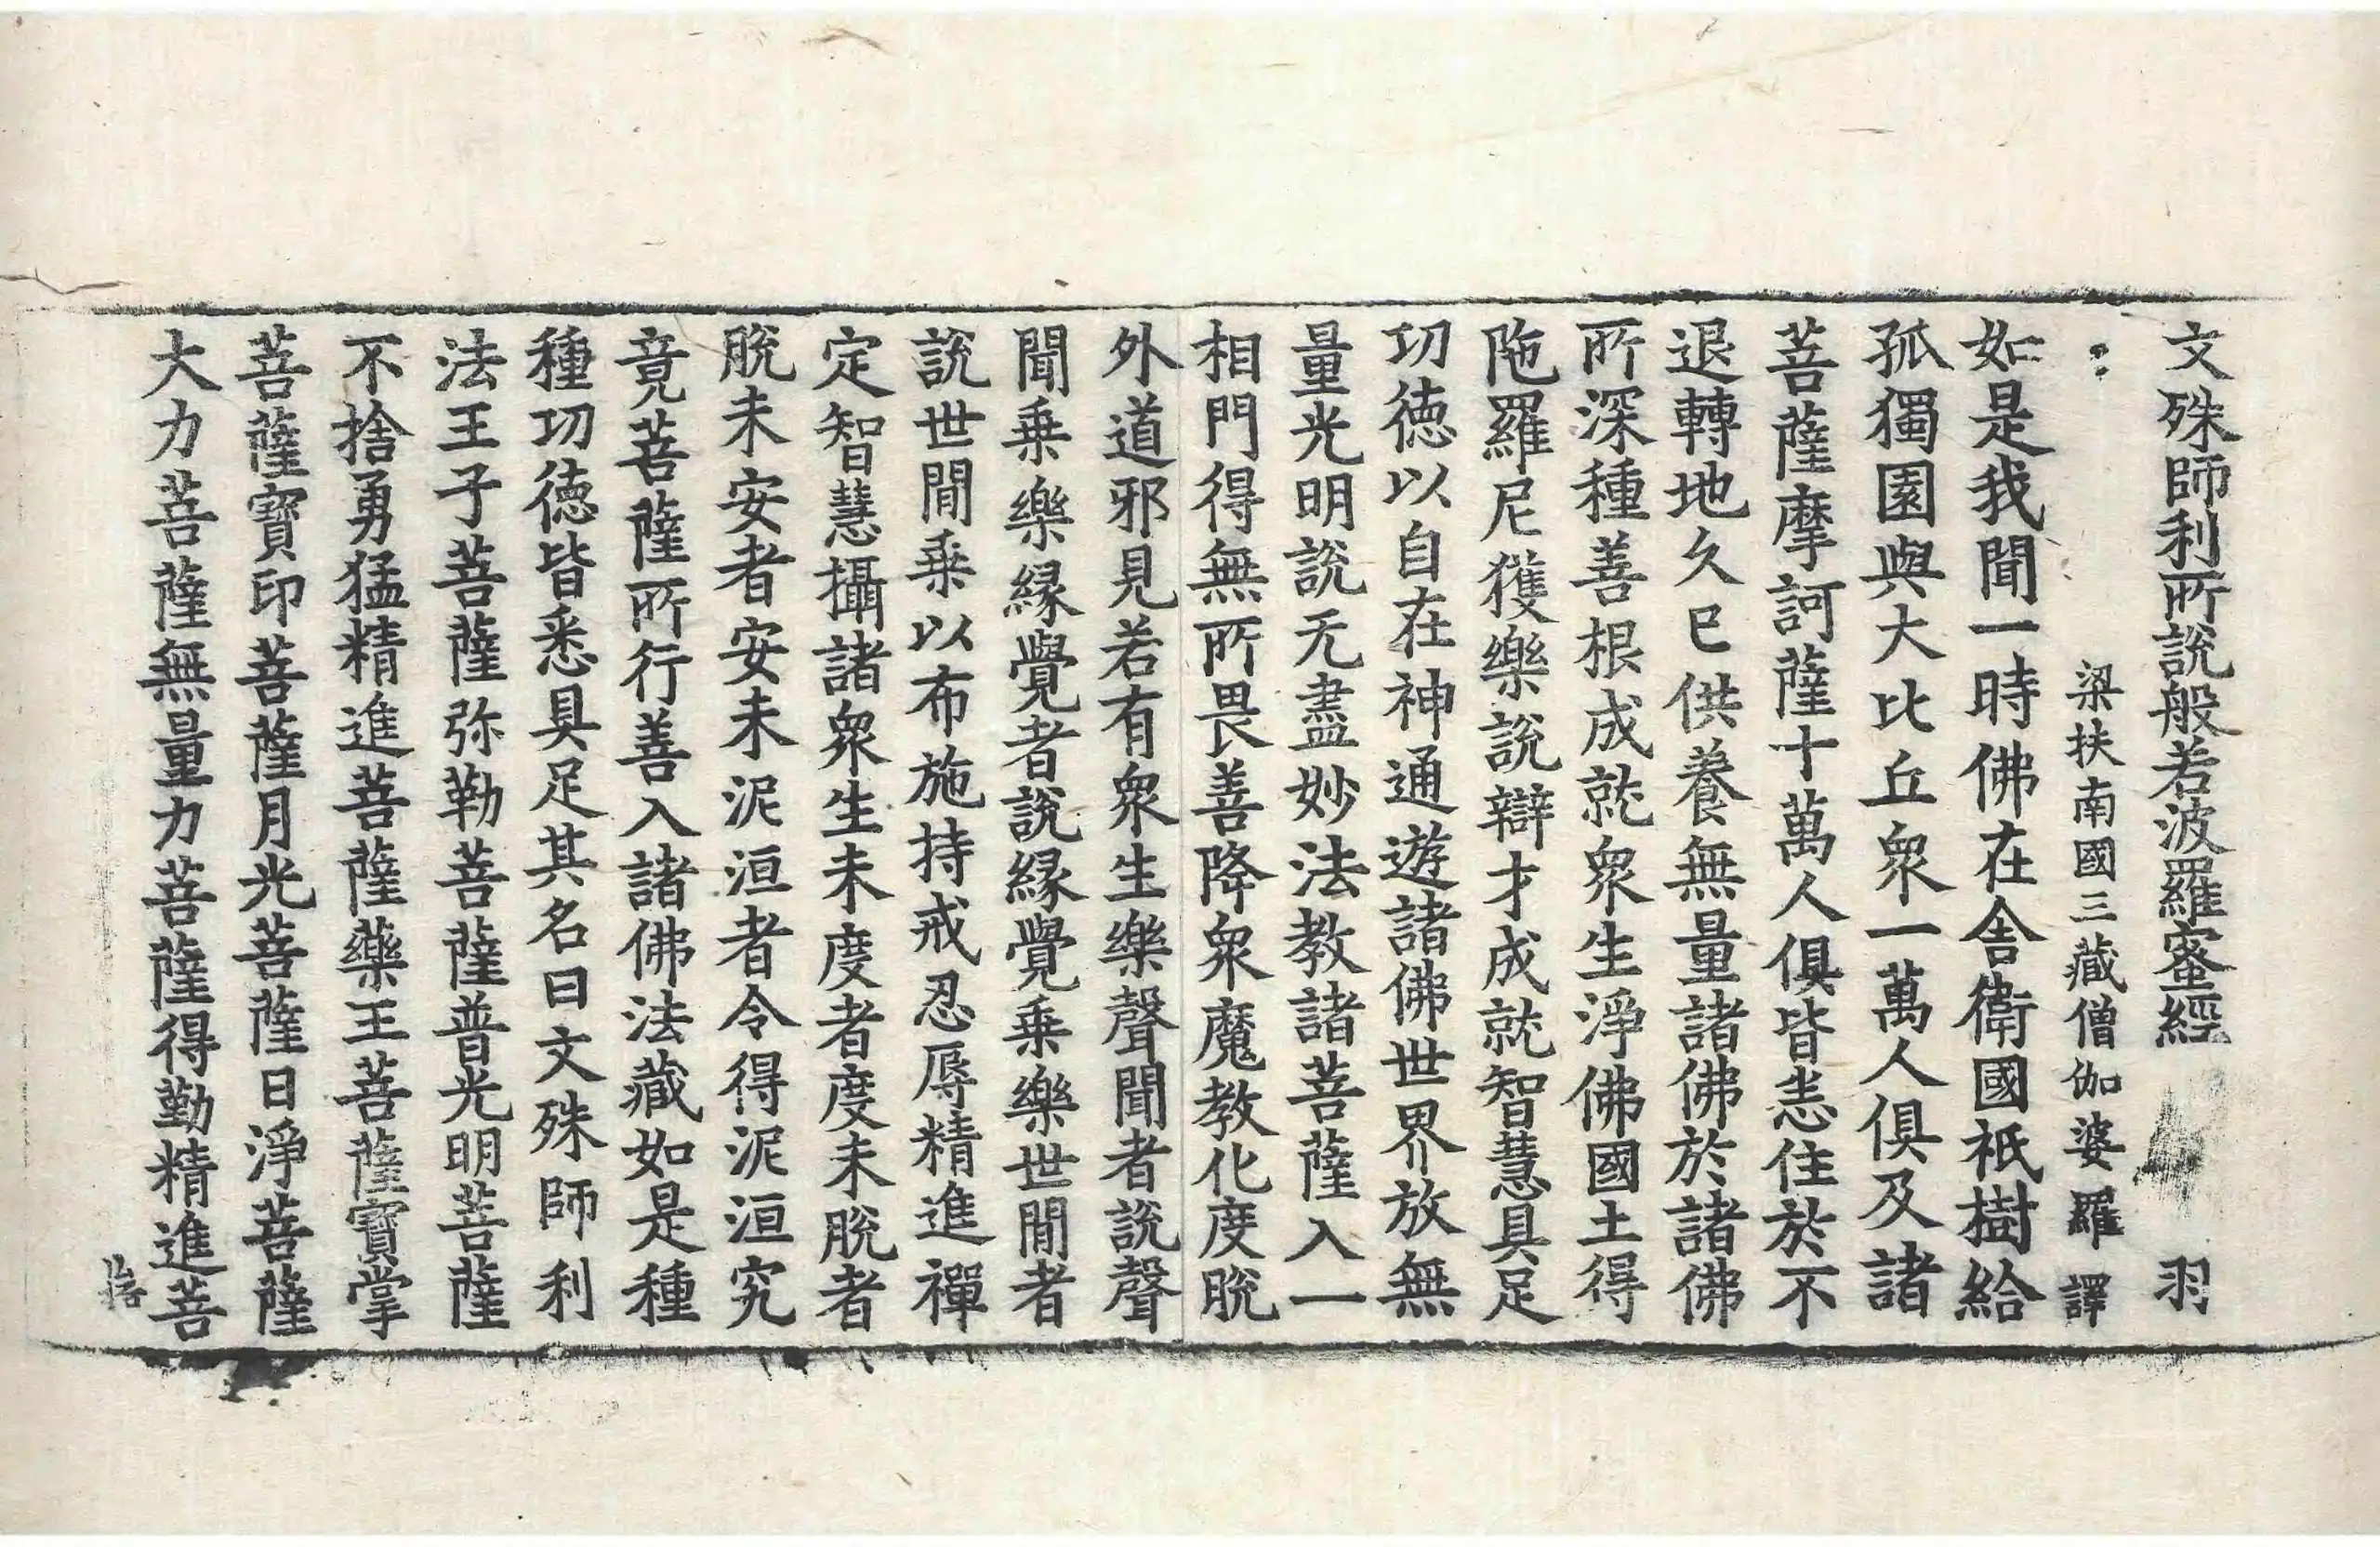 文殊師利所說般若波羅蜜經 羽
梁扶南國三藏僧伽婆羅 譯
如是我聞一時佛在舍衛國祇樹給
孤獨園與大比丘衆一萬人俱及諸
菩薩摩訶薩十萬人俱皆悉住於不
退轉地久已供養無量諸佛於諸佛
所深種善根成就衆生淨佛國土得
陁羅尼獲樂說辯才成就智慧具足
功德以自在神通遊諸佛世界放無
量光明說无盡妙法教諸菩薩入一
相門得無所畏善降衆魔教化度脫
外道邪見若有衆生樂聲聞者說聲
聞乗樂縁覺者說縁覺乗樂世間者
說世間乗以布施持戒忍辱精進禪
定智慧攝諸衆生未度者度未脫者
脫未安者安未泥洹者令得泥洹究
竟菩薩所行善入諸佛法藏如是種
種功德皆悉具足其名曰文殊師利
法王子菩薩弥勒菩薩普光明菩薩
不捨勇猛精進菩薩藥王菩薩寶掌
菩薩寶印菩薩月光菩薩日淨菩薩
大力菩薩無量力菩薩得勤精進菩